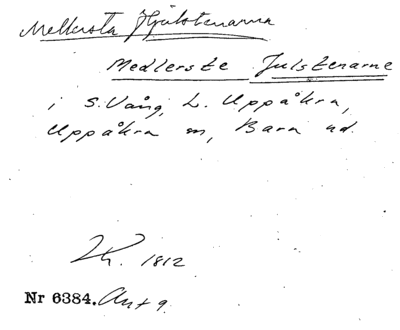 Mellersta Hjulstenarna
Medlerste Julstenarne
i S. Vång, L. Uppåkra,
Uppåkra sn, Bara hd.
1812
Nr 6384. Akt 9.